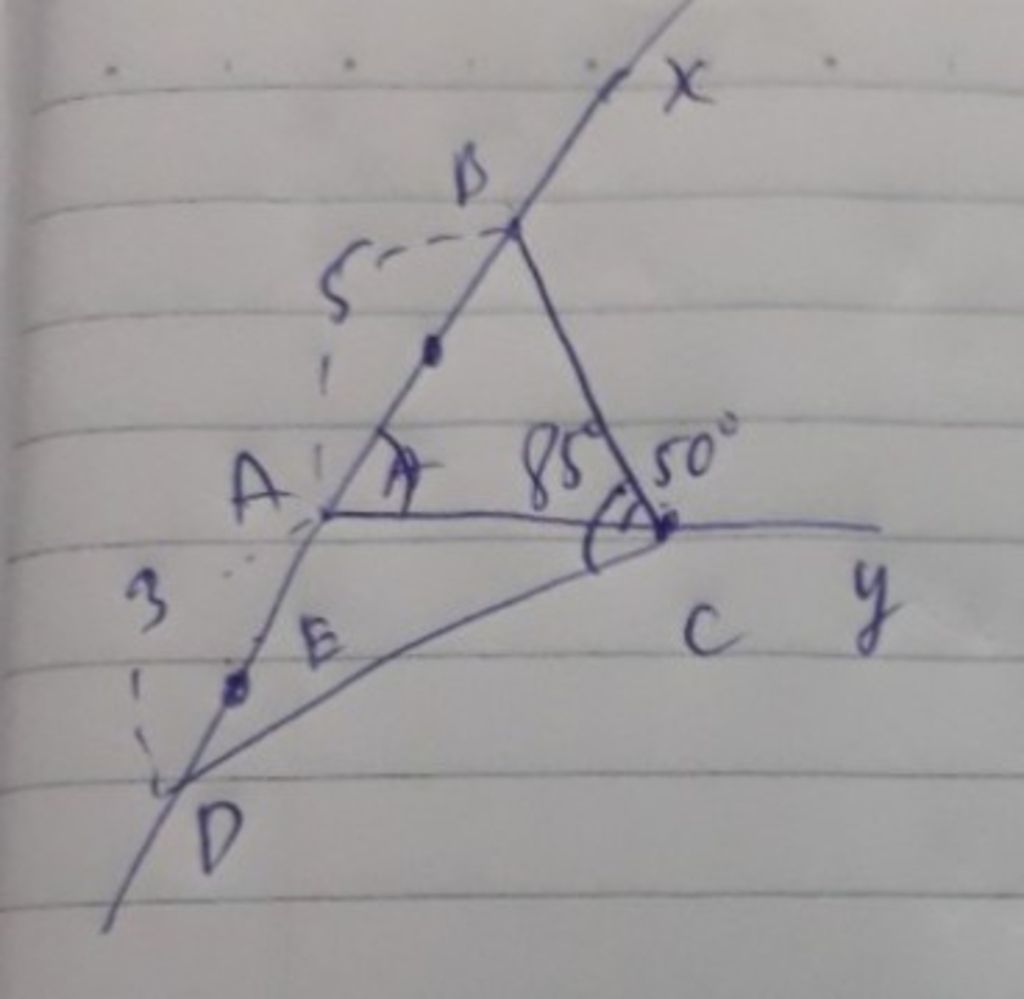 x
B
5
A
85° 50°
3
E
y
C
D